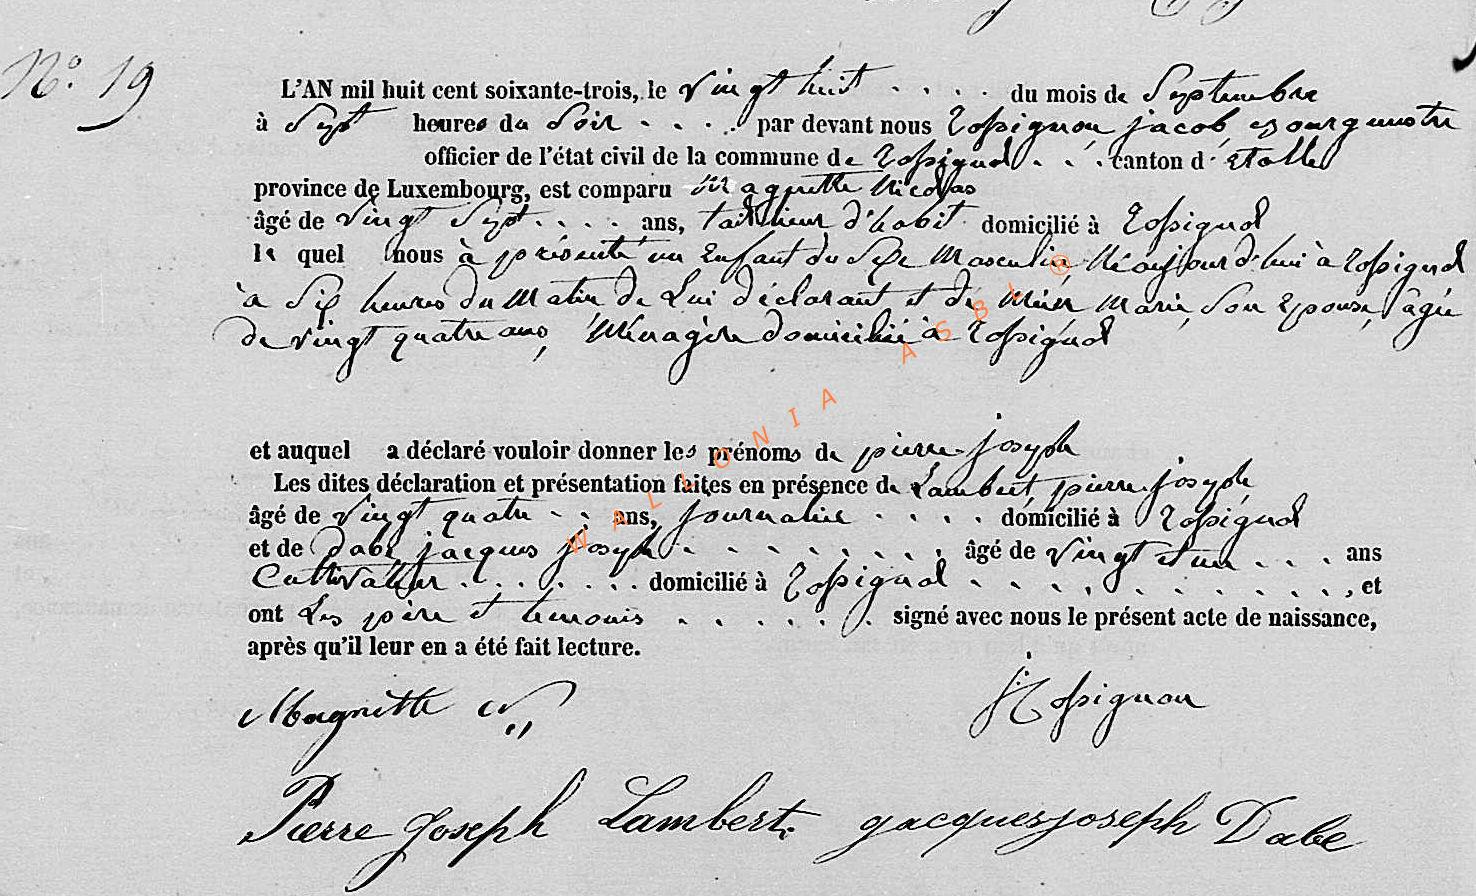 N.° 19
L'AN mil huit cent soixante-trois, le vingt huit . . . . du mois de Septembre
à Sept heures du Soir . . . . par devant nous Rossignon jacob bourgmestre
officier de l'état civil de la commune de Rossignol . . . canton d'étalle
province de Luxembourg, est comparu Magnette Nicolas
âgé de vingt Sept . . . . ans, tailleur d'habit domicilié à Rossignol
le quel nous à présenté un Enfant du Sexe Masculin Né aujourd'hui à Rossignol
à Six heures du Matin de Lui déclarant et de Marie Son Epouse, âgée
de vingt quatre ans, Ménagère domiciliée à Rossignol
et auquel a déclaré vouloir donner les prénoms de pierre joseph
Les dites déclaration et présentation faites en présence de Lambert pierre joseph
âgé de vingt quatre . . ans, journalier . . . . domicilié à Rossignol
et de Dabe jacques joseph . . . . . . . . . âgé de vingt et un . . . ans
Cultivateur . . . . . . . domicilié à Rossignol . . . . . . . . . . . , et
ont Les père et temoins . . . . . . signé avec nous le présent acte de naissance,
après qu'il leur en a été fait lecture.
Magnette N
J Rossignon
Pierre Joseph Lambert. jacques joseph Dabe
WALLONIA ASBL ®